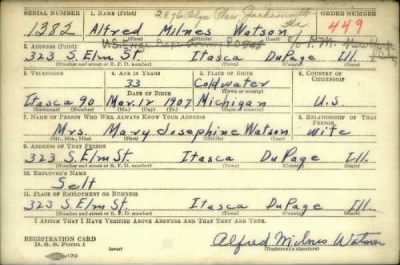 SERIAL NUMBER 1. NAME (Print) ORDER NUMBER
1382 Alfred Milnes Watson 449
(First) (Middle) (Last)
2. ADDRESS (Print)
323 S. Elm St Itasca DuPage Ill.
(Number and street or R. F. D. number) (Town) (County) (State)
3. TELEPHONE 4. AGE IN YEARS 5. PLACE OF BIRTH 6. COUNTRY OF CITIZENSHIP
33 Coldwater
DATE OF BIRTH
Itasca 90 Mar. 12 1907 Michigan U.S.
7. NAME OF PERSON WHO WILL ALWAYS KNOW YOUR ADDRESS 8. RELATIONSHIP OF THAT PERSON
Mrs. Mary Josephine Watson wife
(Mr., Mrs., Miss) (First) (Middle) (Last)
9. ADDRESS OF THAT PERSON
323 S. Elm St. Itasca DuPage Ill.
(Number and street or R. F. D. number) (Town) (County) (State)
10. EMPLOYER'S NAME
Self
11. PLACE OF EMPLOYMENT OR BUSINESS
323 S. Elm St. Itasca DuPage Ill.
(Number and street or R. F. D. number) (Town) (County) (State)
I AFFIRM THAT I HAVE VERIFIED ABOVE ANSWERS AND THAT THEY ARE TRUE.
REGISTRATION CARD
D. S. S. Form 1
Alfred Milnes Watson